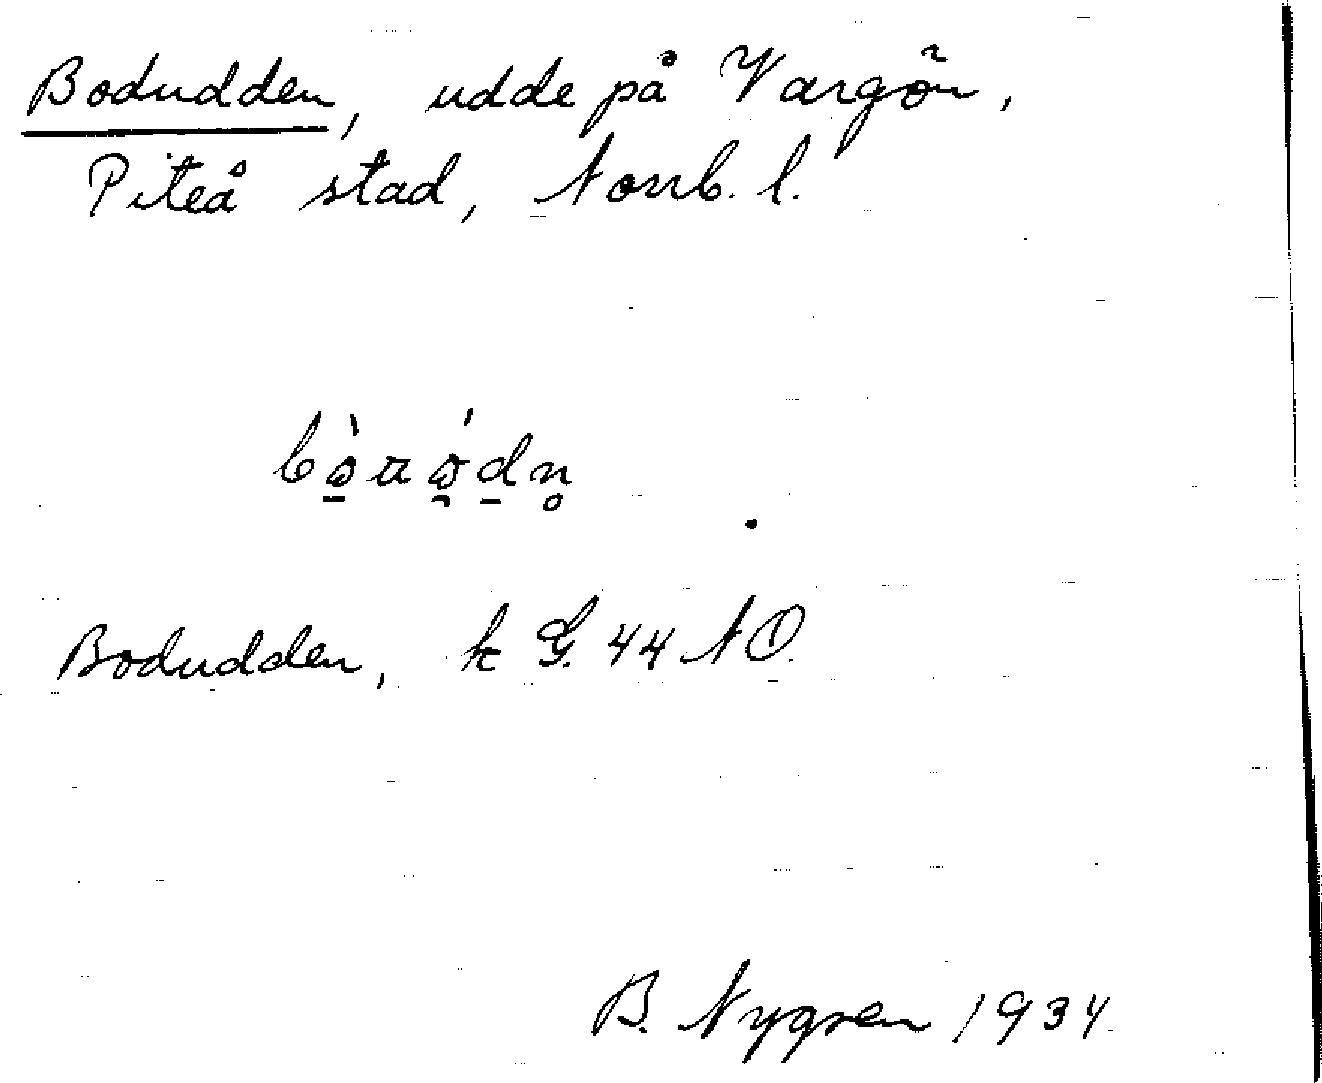 Bodudden, udde på Vargön,
Piteå stad, Norrb. l.
Bodudden, k G. 44 NO.
B. Nygren 1934.